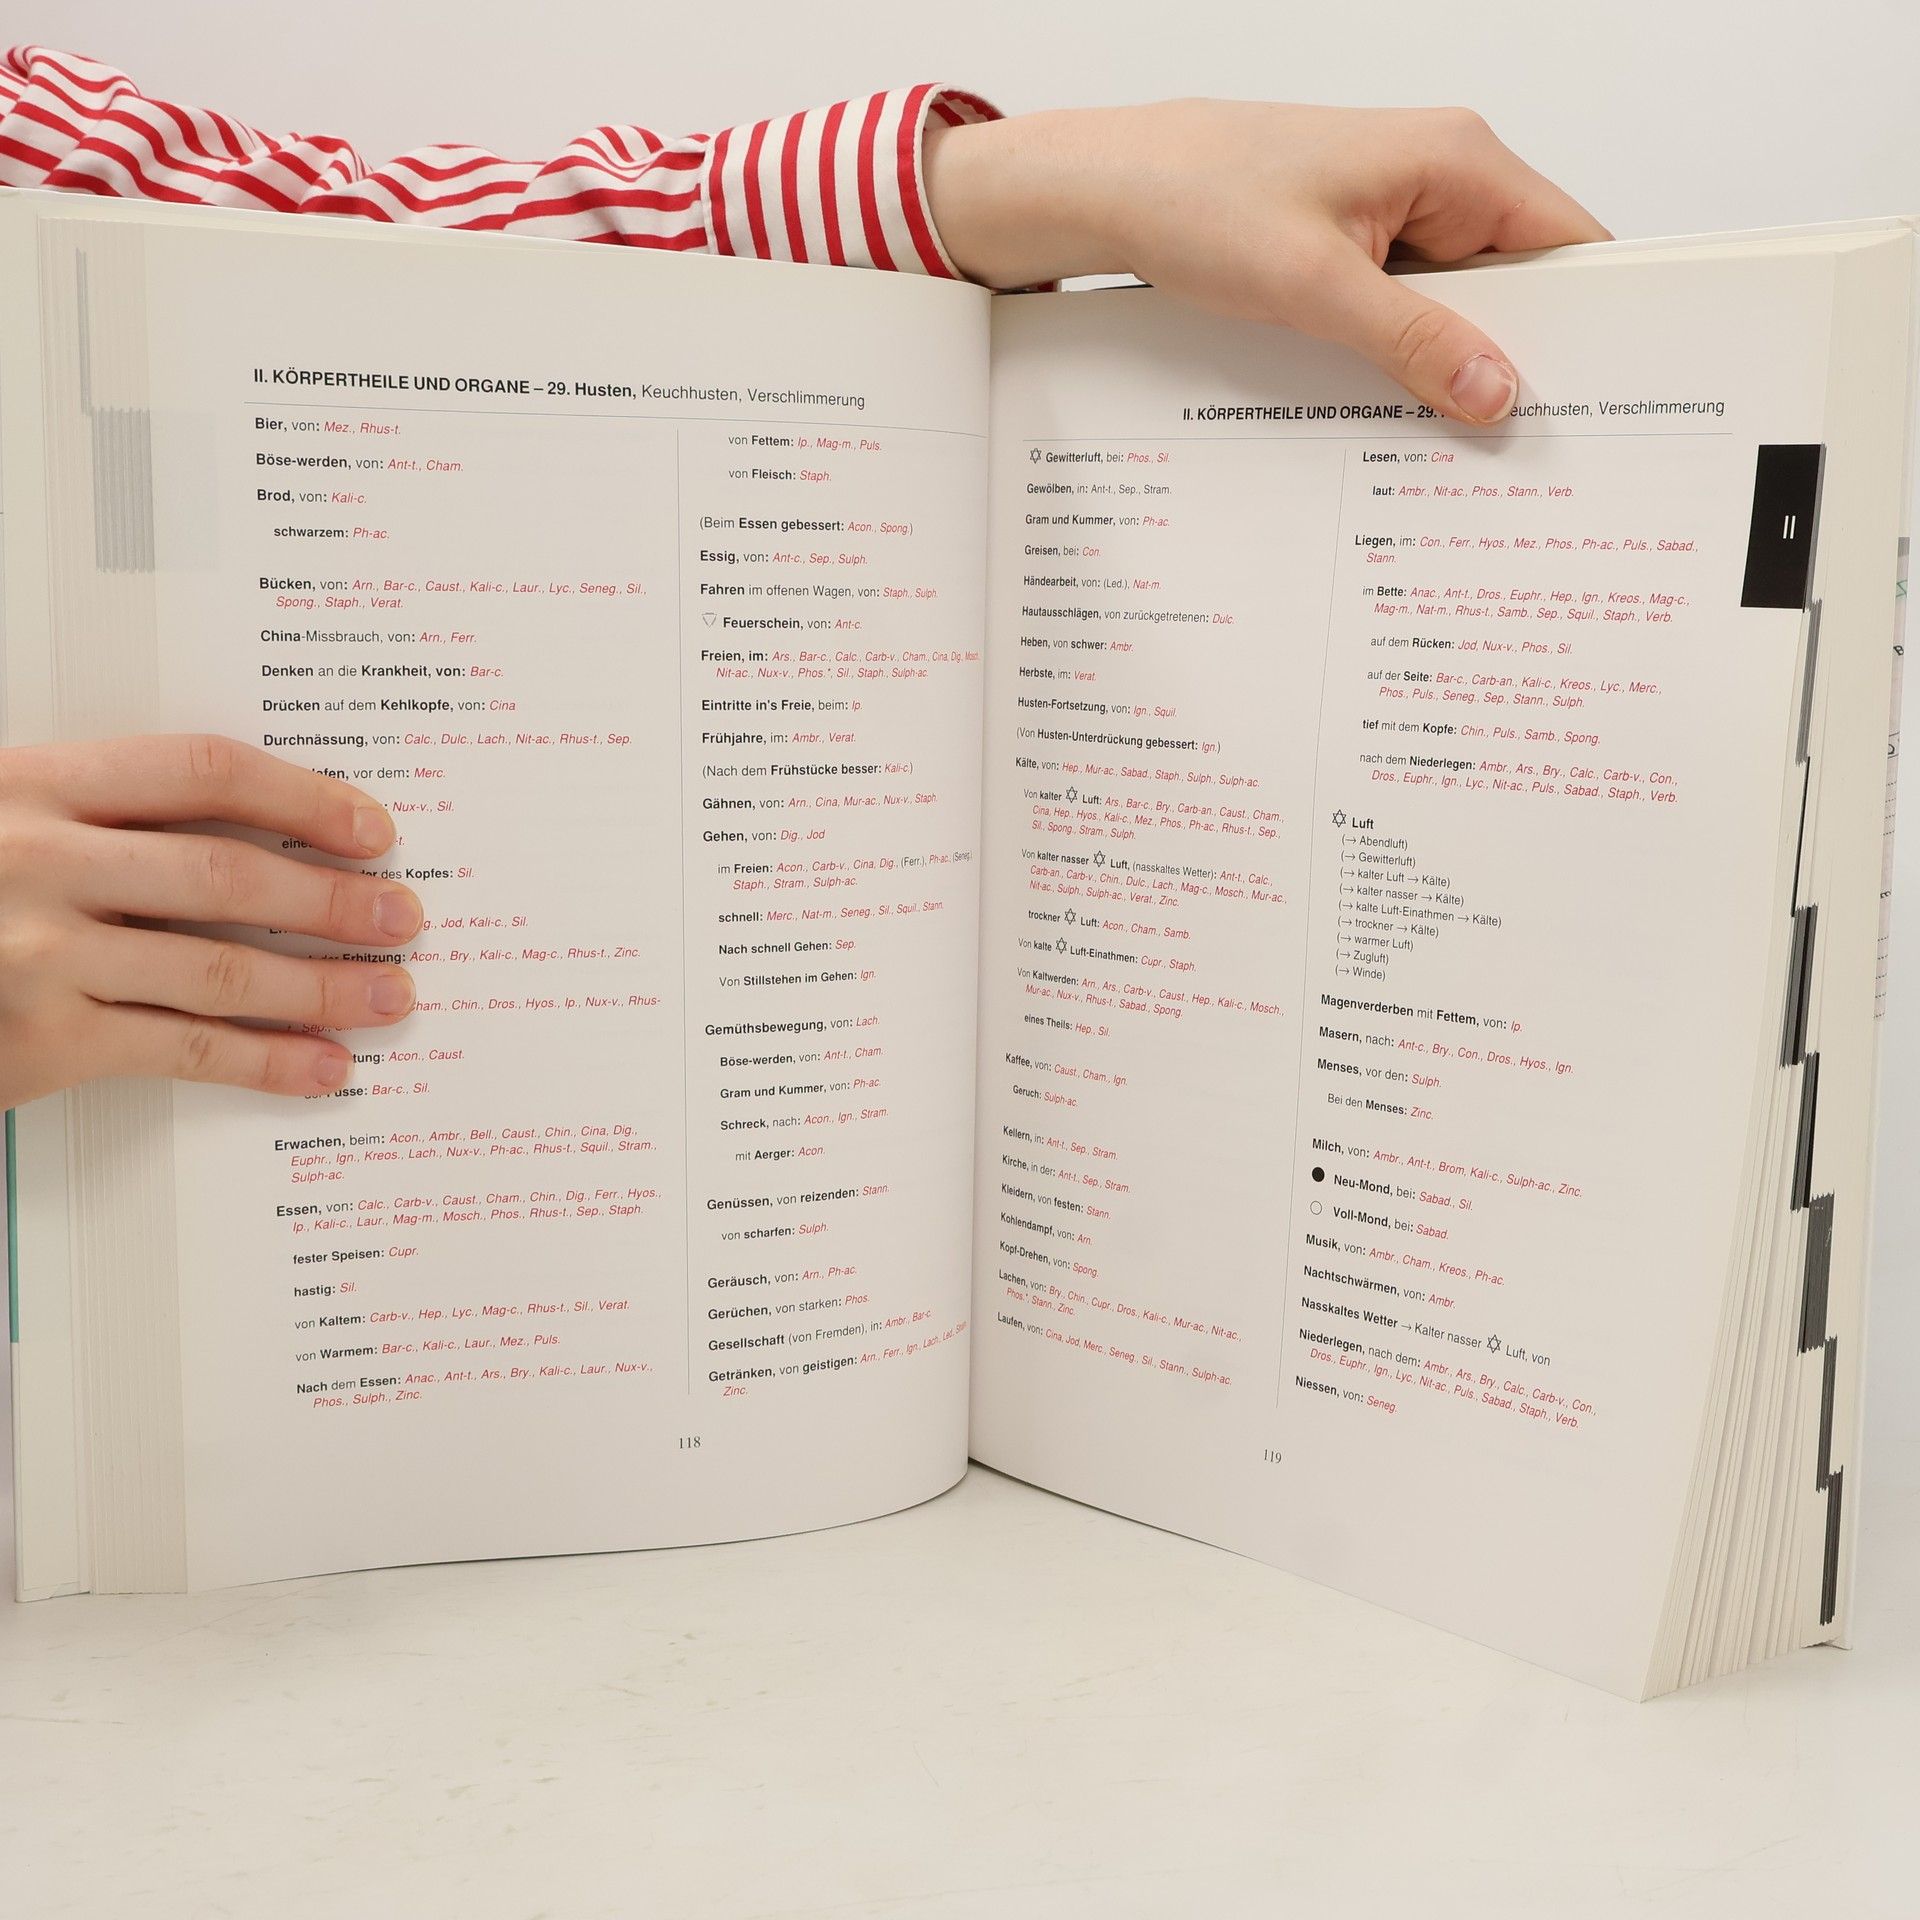 II. KÖRPERTHEILE UND ORGANE – 29. Husten, Keuchhusten, Verschlimmerung
Bier, von: Mez., Rhus-t.
Böse-werden, von: Ant-t., Cham.
Brod, von: Kali-c.
schwarzem: Ph-ac.
Bücken, von: Arn., Bar-c., Caust., Kali-c., Laur., Lyc., Seneg., Sil.,
Spong., Staph., Verat.
China-Missbrauch, von: Arn., Ferr.
Denken an die Krankheit, von: Bar-c.
Drücken auf dem Kehlkopfe, von: Cina
Durchnässung, von: Calc., Dulc., Lach., Nit-ac., Rhus-t., Sep.
vor dem: Merc.
Nux-v., Sil.
des Kopfes: Sil.
Jod, Kali-c., Sil.
Erhitzung: Acon., Bry., Kali-c., Mag-c., Rhus-t., Zinc.
Chin., Dros., Hyos., Ip., Nux-v., Rhus-
Sep.,
Acon., Caust.
Bar-c., Sil.
Erwachen, beim: Acon., Ambr., Bell., Caust., Chin., Cina, Dig.,
Euphr., Ign., Kreos., Lach., Nux-v., Ph-ac., Rhus-t., Squil., Stram.,
Sulph-ac.
Essen, von: Calc., Carb-v., Caust., Cham., Chin., Dig., Ferr., Hyos.,
Ip., Kali-c., Laur., Mag-m., Mosch., Phos., Rhus-t., Sep., Staph.
fester Speisen: Cupr.
hastig: Sil.
von Kaltem: Carb-v., Hep., Lyc., Mag-c., Rhus-t., Sil., Verat.
von Warmem: Bar-c., Kali-c., Laur., Mez., Puls.
Nach dem Essen: Anac., Ant-t., Ars., Bry., Kali-c., Laur., Nux-v.,
Phos., Sulph., Zinc.
von Fettem: Ip., Mag-m., Puls.
von Fleisch: Staph.
(Beim Essen gebessert: Acon., Spong.)
Essig, von: Ant-c., Sep., Sulph.
Fahren im offenen Wagen, von: Staph., Sulph.
Feuerschein, von: Ant-c.
Freien, im: Ars., Bar-c., Calc., Carb-v., Cham., Cina, Dig., Mosch.,
Nit-ac., Nux-v., Phos.*, Sil., Staph., Sulph-ac.
Eintritte in's Freie, beim: Ip.
Frühjahre, im: Ambr., Verat.
(Nach dem Frühstücke besser: Kali-c.)
Gähnen, von: Arn., Cina, Mur-ac., Nux-v., Staph.
Gehen, von: Dig., Jod
im Freien: Acon., Carb-v., Cina, Dig., (Ferr.), Ph-ac., (Seneg.)
Staph., Stram., Sulph-ac.
schnell: Merc., Nat-m., Seneg., Sil., Squil., Stann.
Nach schnell Gehen: Sep.
Von Stillstehen im Gehen: Ign.
Gemüthsbewegung, von: Lach.
Böse-werden, von: Ant-t., Cham.
Gram und Kummer, von: Ph-ac.
Schreck, nach: Acon., Ign., Stram.
mit Aerger: Acon.
Genüssen, von reizenden: Stann.
von scharfen: Sulph.
Geräusch, von: Arn., Ph-ac.
Gerüchen, von starken: Phos.
Gesellschaft (von Fremden), in: Ambr., Bar-c.
Getränken, von geistigen: Arn., Ferr., Ign., Lach., Led., Stram.
Zinc.
118
II. KÖRPERTHEILE UND ORGANE – 29. euchhusten, Verschlimmerung
Gewitterluft, bei: Phos., Sil.
Gewölben, in: Ant-t., Sep., Stram.
Gram und Kummer, von: Ph-ac.
Greisen, bei: Con.
Händearbeit, von: (Led.), Nat-m.
Hautausschlägen, von zurückgetretenen: Dulc.
Heben, von schwer: Ambr.
Herbste, im: Verat.
Husten-Fortsetzung, von: Ign., Squil.
(Von Husten-Unterdrückung gebessert: Ign.)
Kälte, von: Hep., Mur-ac., Sabad., Staph., Sulph., Sulph-ac.
Von kalter Luft: Ars., Bar-c., Bry., Carb-an., Caust., Cham.,
Cina, Hep., Hyos., Kali-c., Mez., Phos., Ph-ac., Rhus-t., Sep.,
Sil., Spong., Stram., Sulph.
Von kalter nasser Luft, (nasskaltes Wetter): Ant-t., Calc.,
Carb-an., Carb-v., Chin., Dulc., Lach., Mag-c., Mosch., Mur-ac.,
Nit-ac., Sulph., Sulph-ac., Verat., Zinc.
trockner Luft: Acon., Cham., Samb.
Von kalte Luft-Einathmen: Cupr., Staph.
Von Kaltwerden: Arn., Ars., Carb-v., Caust., Hep., Kali-c., Mosch.,
Mur-ac., Nux-v., Rhus-t., Sabad., Spong.
eines Theils: Hep., Sil.
Kaffee, von: Caust., Cham., Ign.
Geruch: Sulph-ac.
Kellern, in: Ant-t., Sep., Stram.
Kirche, in der: Ant-t., Sep., Stram.
Kleidern, von festen: Stann.
Kohlendampf, von: Arn.
Kopf-Drehen, von: Spong.
Lachen, von: Bry., Chin., Cupr., Dros., Kali-c., Mur-ac., Nit-ac.,
Phos.*, Stann., Zinc.
Laufen, von: Cina, Jod, Merc., Seneg., Sil., Stann., Sulph-ac.
Lesen, von: Cina
laut: Ambr., Nit-ac., Phos., Stann., Verb.
Liegen, im: Con., Ferr., Hyos., Mez., Phos., Ph-ac., Puls., Sabad.,
Stann.
im Bette: Anac., Ant-t., Dros., Euphr., Hep., Ign., Kreos., Mag-c.,
Mag-m., Nat-m., Rhus-t., Samb., Sep., Squil., Staph., Verb.
auf dem Rücken: Jod, Nux-v., Phos., Sil.
auf der Seite: Bar-c., Carb-an., Kali-c., Kreos., Lyc., Merc.,
Phos., Puls., Seneg., Sep., Stann., Sulph.
tief mit dem Kopfe: Chin., Puls., Samb., Spong.
nach dem Niederlegen: Ambr., Ars., Bry., Calc., Carb-v., Con.,
Dros., Euphr., Ign., Lyc., Nit-ac., Puls., Sabad., Staph., Verb.
Luft
(→ Abendluft)
(→ Gewitterluft)
(→ kalter Luft → Kälte)
(→ kalter nasser → Kälte)
(→ kalte Luft-Einathmen → Kälte)
(→ trockner → Kälte)
(→ warmer Luft)
(→ Zugluft)
(→ Winde)
Magenverderben mit Fettem, von: Ip.
Masern, nach: Ant-c., Bry., Con., Dros., Hyos., Ign.
Menses, vor den: Sulph.
Bei den Menses: Zinc.
Milch, von: Ambr., Ant-t., Brom, Kali-c., Sulph-ac., Zinc.
Neu-Mond, bei: Sabad., Sil.
Voll-Mond, bei: Sabad.
Musik, von: Ambr., Cham., Kreos., Ph-ac.
Nachtschwärmen, von: Ambr.
Nasskaltes Wetter → Kalter nasser Luft, von
Niederlegen, nach dem: Ambr., Ars., Bry., Calc., Carb-v., Con.,
Dros., Euphr., Ign., Lyc., Nit-ac., Puls., Sabad., Staph., Verb.
Niessen, von: Seneg.
119
II